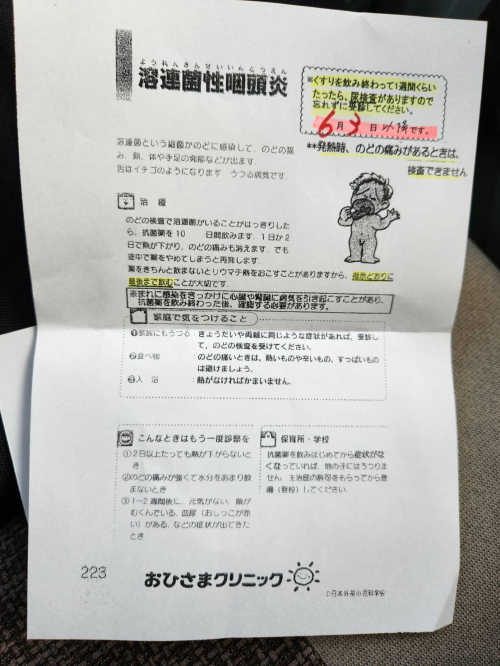 ようれんきんせいいんとうえん
溶連菌性咽頭炎
※くすりを飲み終わって1週間くらい
たったら、尿検査がありますので
忘れずに受診してください。
6月3日 です。
**発熱時、のどの痛みがあるときは、
検査できません
溶連菌という細菌がのどに感染して、のどの痛
み、熱、体や手足の発疹などが出ます。
舌はイチゴのようになります うつる病気です。
治 療
のどの検査で溶連菌がいることがはっきりした
ら、抗菌薬を10 日間飲みます。1日か2
日で熱が下がり、のどの痛みも消えます。でも
途中で薬をやめてしまうと再発します。
薬をきちんと飲まないとリウマチ熱をおこすことがありますから、指示どおりに
最後まで飲むことが大切です。
※まれに感染をきっかけに心臓や腎臓に病気を引き起こすことがあり、
抗菌薬を飲み終わった後、確認する必要があります。
家庭で気をつけること
①家族にもうつる:きょうだいや両親に同じような症状があれば、受診し
て、のどの検査を受けてください。
②食べ物 :のどの痛いときは、熱いものや辛いもの、すっぱいもの
は避けましょう。
③入 浴 :熱がなければかまいません。
こんなときはもう一度診察を
①2日以上たっても熱が下がらないと
き
②のどの痛みが強くて水分をあまり飲
まないとき
③1~2週間後に、元気がない、顔が
むくんでいる、血尿(おしっこが赤
い)がある、などの症状が出てきた
とき
保育所・学校
抗菌薬を飲みはじめてから症状がな
くなっていれば、他の子にはうつりま
せん。主治医の許可をもらってから登
園(登校)してください。
223
おひさまクリニック
©日本外来小児科学会